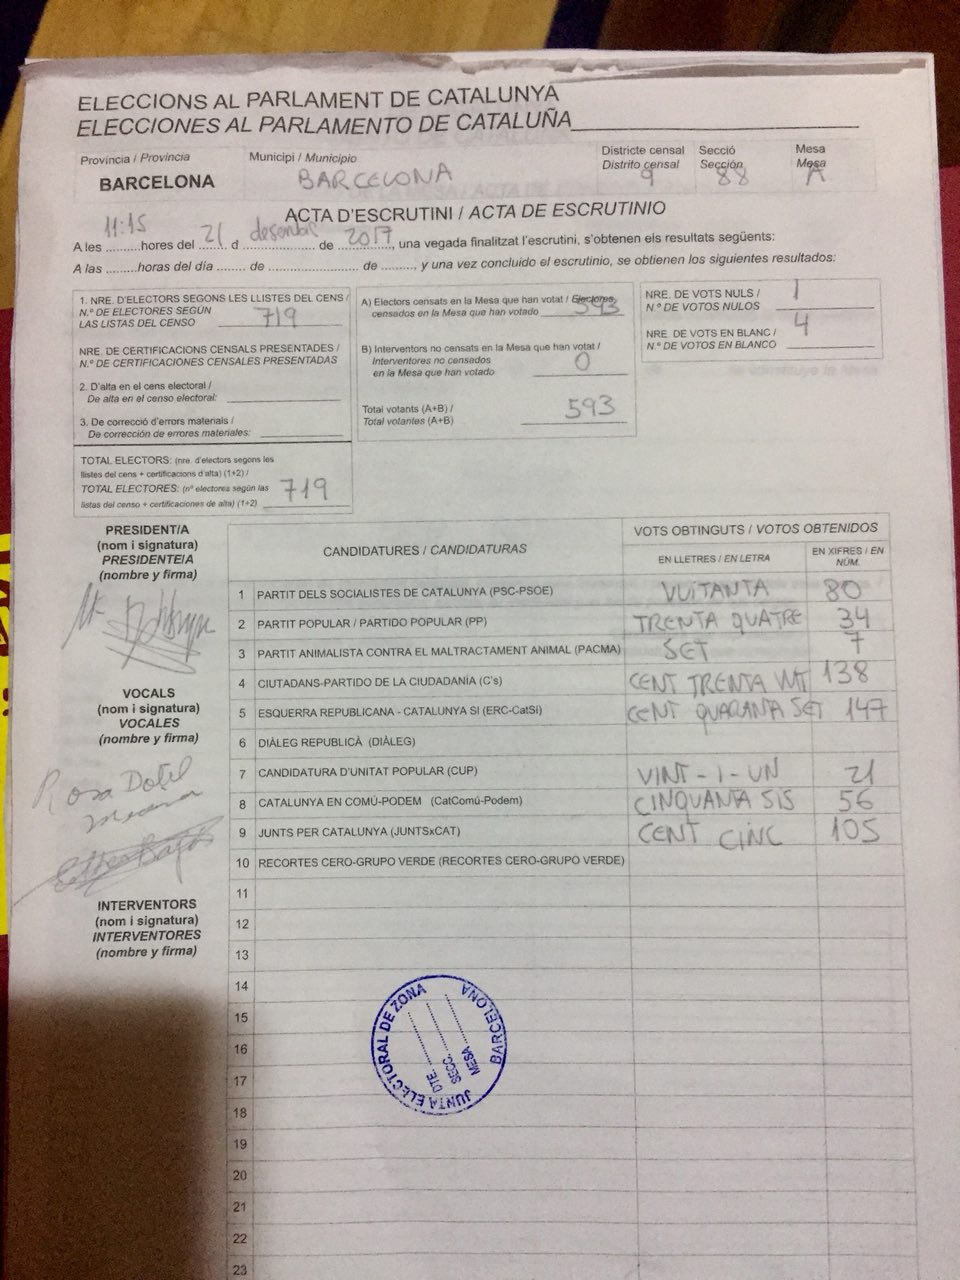 ELECCIONS AL PARLAMENT DE CATALUNYA
ELECCIONES AL PARLAMENTO DE CATALUÑA
Provincia / Provincia
BARCELONA
Municipi / Municipio
BARCELONA
Districte censal
Distrito censal
9
Secció
Sección
88
Mesa
Mesa
A
ACTA D'ESCRUTINI / ACTA DE ESCRUTINIO
A les 11:15 hores del 21 d desembre de 2017, una vegada finalitzat l'escrutini, s'obtenen els resultats següents:
A las .........horas del día ....... de .......................... de ........, y una vez concluido el escrutinio, se obtienen los siguientes resultados:
1. NRE. D'ELECTORS SEGONS LES LLISTES DEL CENS /
N.º DE ELECTORES SEGÚN
LAS LISTAS DEL CENSO 719
NRE. DE CERTIFICACIONS CENSALS PRESENTADES /
N.º DE CERTIFICACIONES CENSALES PRESENTADAS
2. D'alta en el cens electoral /
De alta en el censo electoral:
3. De correcció d'errors materials /
De corrección de errores materiales:
TOTAL ELECTORS: (nre. d'electors segons les
llistes del cens + certificacions d'alta) (1+2) /
TOTAL ELECTORES: (nº electores según las
listas del censo + certificaciones de alta) (1+2) 719
A) Electors censats en la Mesa que han votat / Electores
censados en la Mesa que han votado 593
B) Interventors no censats en la Mesa que han votat /
Interventores no censados
en la Mesa que han votado 0
Total votants (A+B) /
Total votantes (A+B) 593
NRE. DE VOTS NULS /
N.º DE VOTOS NULOS 1
NRE. DE VOTS EN BLANC /
N.º DE VOTOS EN BLANCO 4
PRESIDENT/A
(nom i signatura)
PRESIDENTE/A
(nombre y firma)
VOCALS
(nom i signatura)
VOCALES
(nombre y firma)
Rosa Dotel
INTERVENTORS
(nom i signatura)
INTERVENTORES
(nombre y firma)
CANDIDATURES / CANDIDATURAS
VOTS OBTINGUTS / VOTOS OBTENIDOS
EN LLETRES / EN LETRA
EN XIFRES / EN
NÚM.
1 PARTIT DELS SOCIALISTES DE CATALUNYA (PSC-PSOE) VUITANTA 80
2 PARTIT POPULAR / PARTIDO POPULAR (PP) TRENTA QUATRE 34
3 PARTIT ANIMALISTA CONTRA EL MALTRACTAMENT ANIMAL (PACMA) SET 7
4 CIUTADANS-PARTIDO DE LA CIUDADANÍA (C's) CENT TRENTA VUIT 138
5 ESQUERRA REPUBLICANA - CATALUNYA SÍ (ERC-CatSí) CENT QUARANTA SET 147
6 DIÀLEG REPUBLICÀ (DIÀLEG)
7 CANDIDATURA D'UNITAT POPULAR (CUP) VINT-I-UN 21
8 CATALUNYA EN COMÚ-PODEM (CatComú-Podem) CINQUANTA SIS 56
9 JUNTS PER CATALUNYA (JUNTSxCAT) CENT CINC 105
10 RECORTES CERO-GRUPO VERDE (RECORTES CERO-GRUPO VERDE)
11
12
13
14
15
16
17
18
19
20
21
22
23
JUNTA ELECTORAL DE ZONA
BARCELONA
DTE. ............
SECC. ............
MESA ............